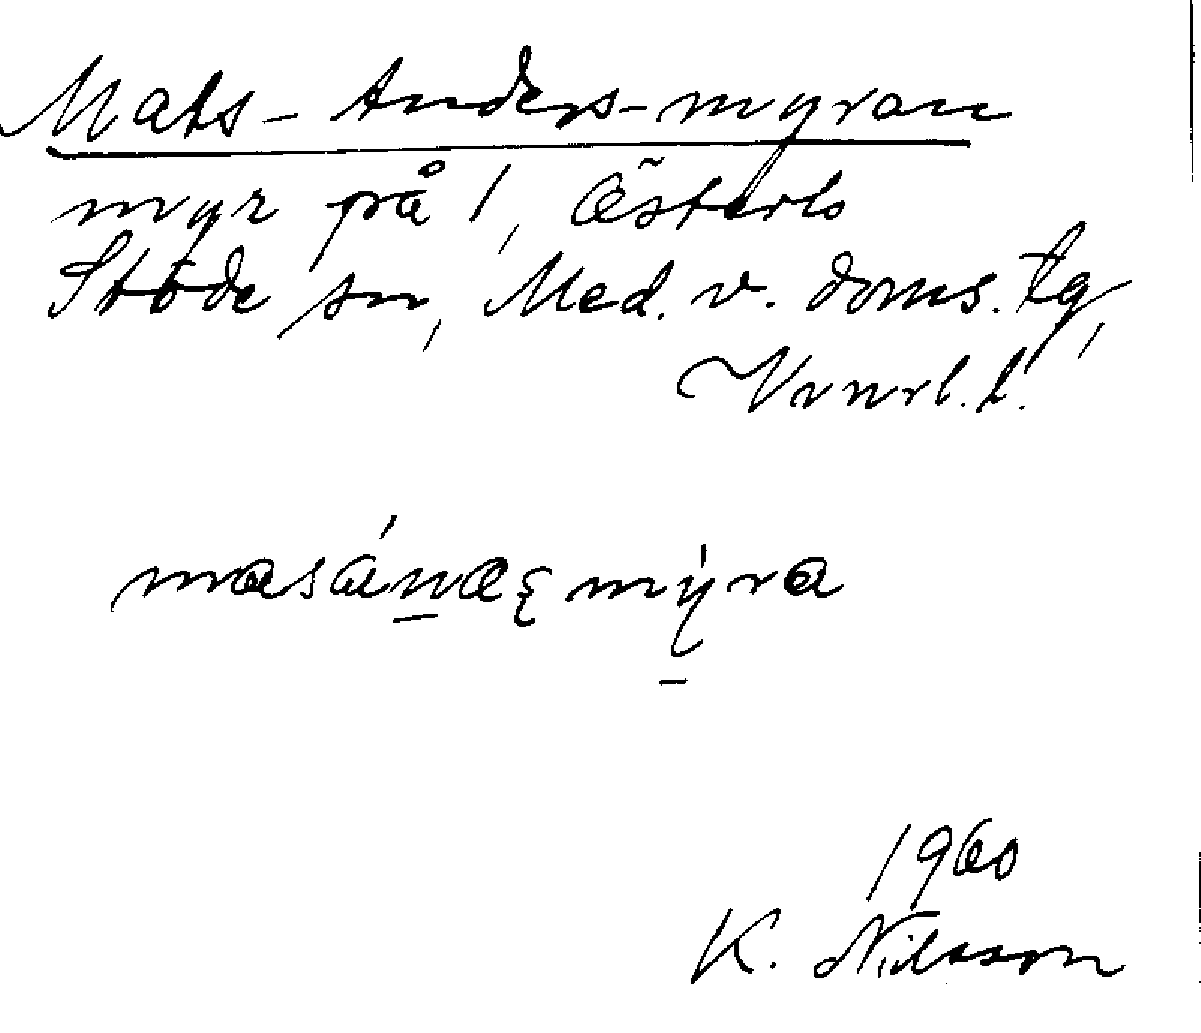 Mats-Anders-myran
myr på 1, Österlo
Stöde sn, Med. v. doms. tg,
Vrnrl. l.
masánaʂmýra
1960
K. Nilsson